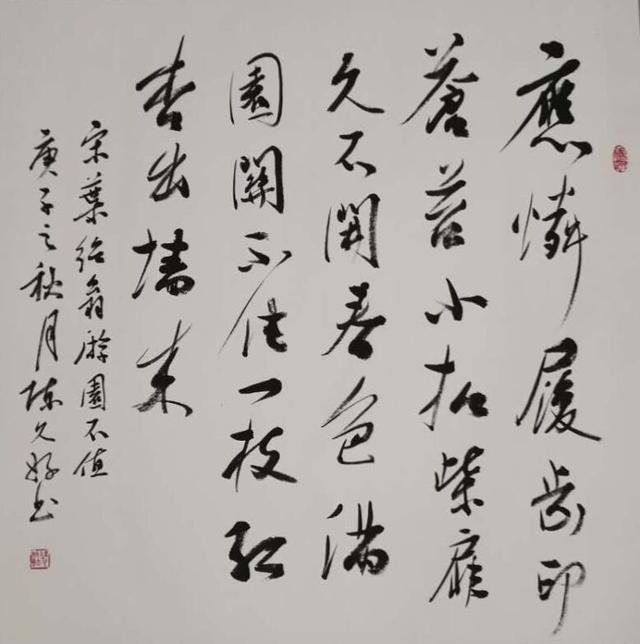 應憐屐齒印
蒼苔小扣柴扉
久不開春色滿
園關不住一枝紅
杏出墻来
宋葉紹翁游園不值
庚子之秋月陳久好书